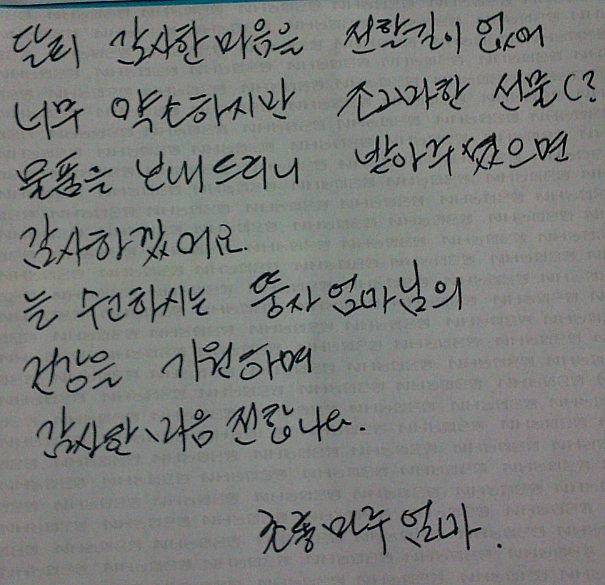 달리 감사한 마음을 전할길이 없어
너무 약소하지만 조그마한 선물(?
물품을 보내드리니 받아주셨으면
감사하겠어요.
늘 수고하시는 뚱자 엄마님의
건강을 기원하며
감사한 마음 전합니다.
초롱 미주 엄마.